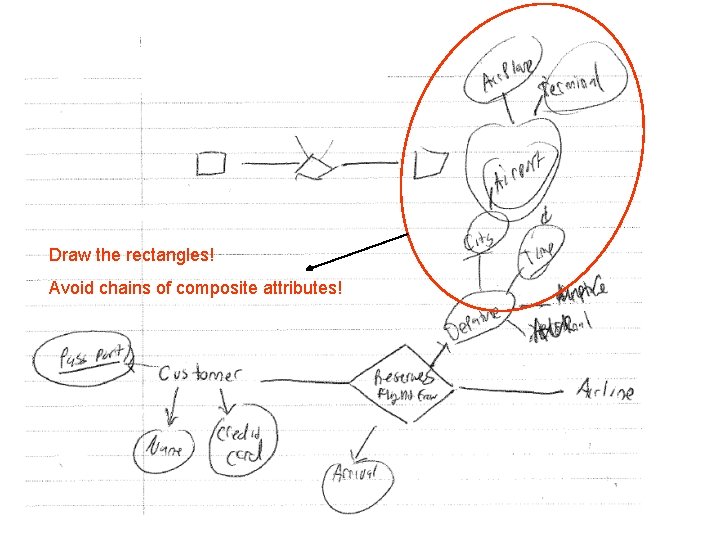 Airplane
Terminal
Airport
City
Time
Draw the rectangles!
Avoid chains of composite attributes!
Passport
Customer
Reserves
Airline
Name
Credit
card
Arrival